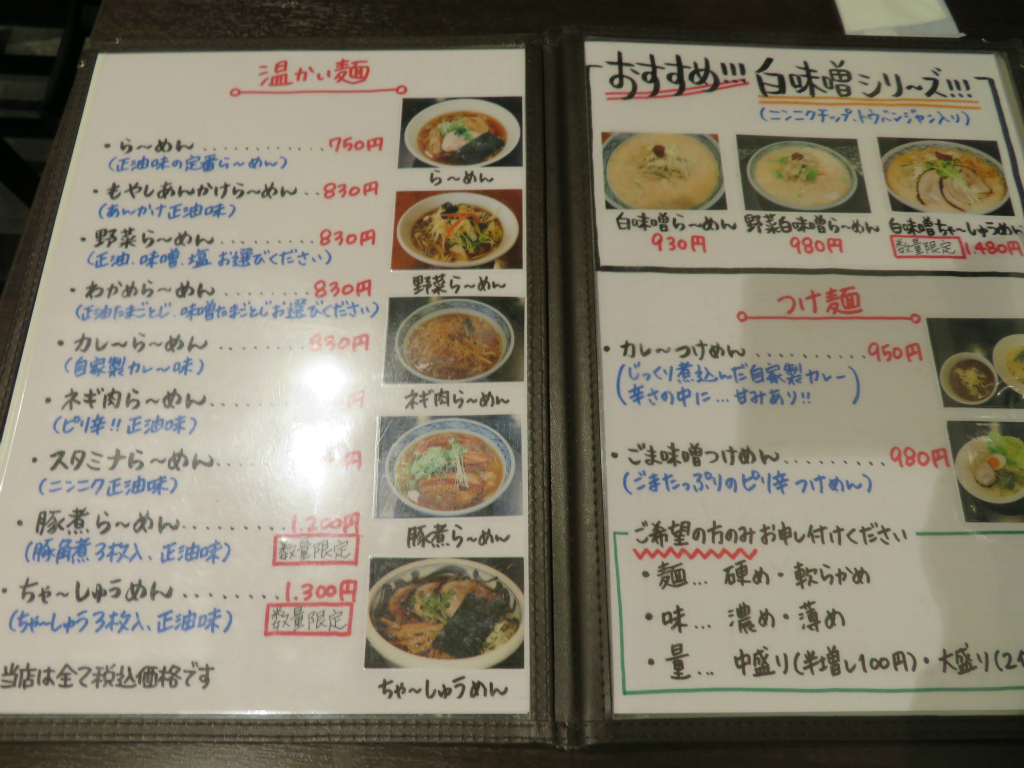 温かい麺
・ら〜めん............750円
(正油味の定番ら〜めん)
・もやしあんかけら〜めん..830円
(あんかけ正油味)
・野菜ら〜めん.........830円
(正油、味噌、塩 お選びください)
・わかめら〜めん........830円
(正油たまごとじ、味噌たまごとじお選びください)
・カレ〜ら〜めん........830円
(自家製カレ〜味)
・ネギ肉ら〜めん.......円
(ピリ辛!! 正油味)
・スタミナら〜めん......円
(ニンニク正油味)
・豚煮ら〜めん.........1.200円
(豚角煮3枚入、正油味)
数量限定
・ちゃ〜しゅうめん.........1.300円
(ちゃ〜しゅう3枚入、正油味)
数量限定
当店は全て税込価格です
ら〜めん
野菜ら〜めん
ネギ肉ら〜めん
豚煮ら〜めん
ちゃ〜しゅうめん
おすすめ!!! 白味噌シリ〜ズ!!!
(ニンニクチップ、トウバンジャン入り)
白味噌ら〜めん
930円
野菜白味噌ら〜めん
980円
白味噌ちゃ〜しゅうめん
数量限定 1.480円
つけ麺
・カレ〜つけめん..........950円
(じっくり煮込んだ自家製カレー
辛さの中に...甘みあり!!)
・ごま味噌つけめん.........980円
(ごまたっぷりのピリ辛つけめん)
ご希望の方のみお申し付けください
・麺... 硬め・軟らかめ
・味... 濃め・薄め
・量... 中盛り(半増し100円)・大盛り(2